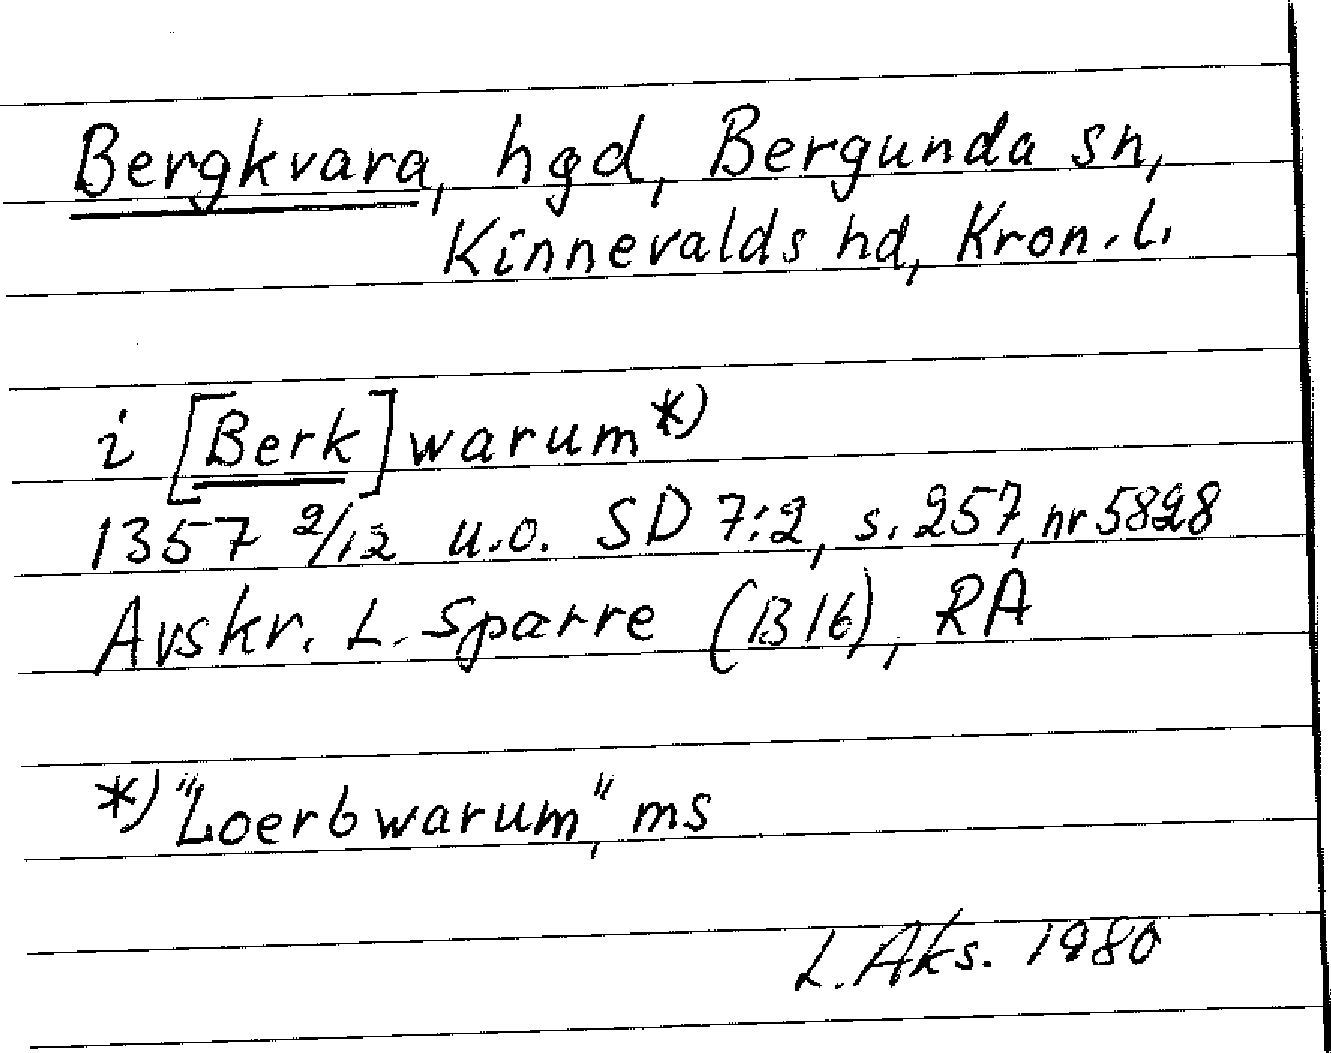 Bergkvara, hgd, Bergunda sn,
Kinnevalds hd, Kron. l.
i [Berk]warum*)
1357 2/12 u.o. SD 7:2, s. 257, nr 5828
Avskr. L. Sparre (B 16), RA
*) "Loerbwarum", ms
L. Aks. 1980